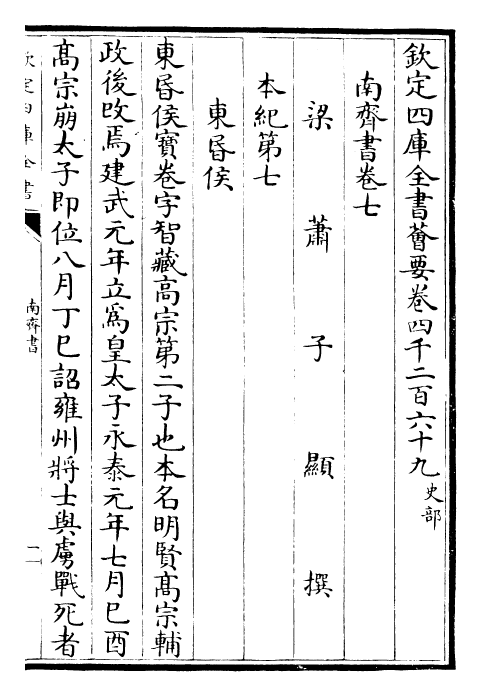 欽定四庫全書薈要卷四千二百六十九 史部
南齊書卷七
梁蕭子顯撰
本紀第七
東昏侯
東昏侯寳卷字智藏高宗第二子也本名明賢髙宗輔
政後改焉建武元年立爲皇太子永泰元年七月己酉
髙宗崩太子即位八月丁巳詔雍州將士與虜戰死者
欽定四庫全書
南齊書
二